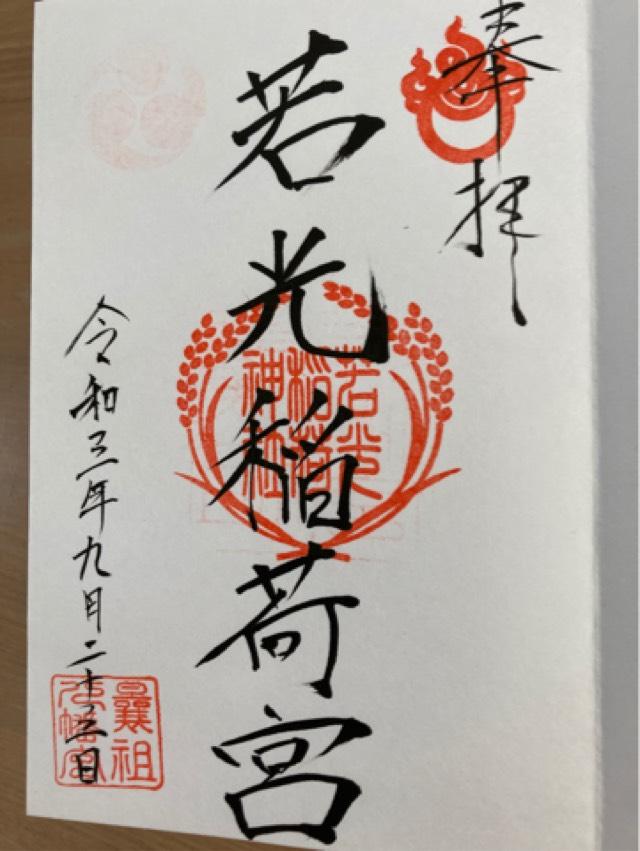 奉拝
若光稲荷宮
若光
稲荷
神社
令和三年九月二十三日
曩祖
八幡宮